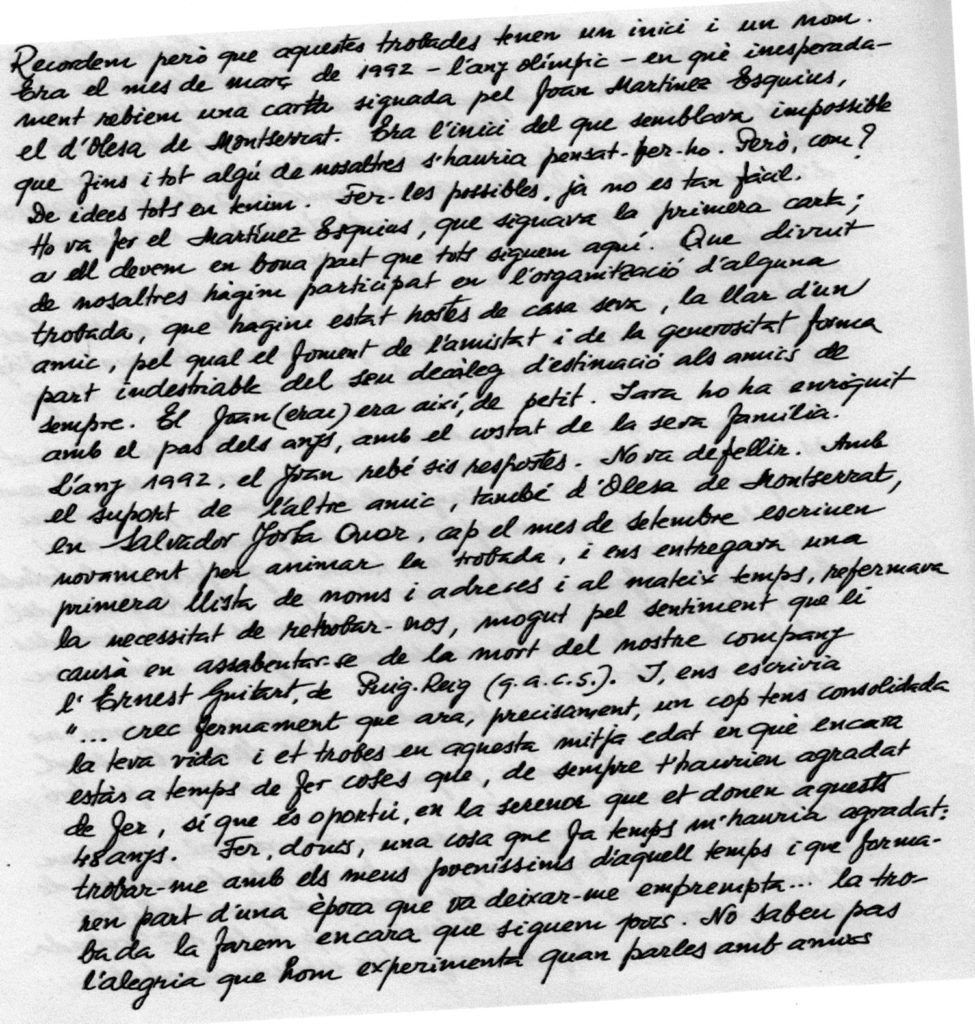 Recordem però que aquestes trobades tenen un inici i un nom.
Era el mes de març de 1992 - l'any olímpic - en què inesperada-
ment rebíem una carta signada pel Joan Martínez Esquius,
el d'Olesa de Montserrat. Era l'inici del que semblava impossible
que fins i tot algú de nosaltres s'hauria pensat-fer-ho. Però, com?
De idees tots en tenim. Fer-les possibles, ja no es tan fàcil.
Ho va fer el Martínez Esquius, que signava la primera carta;
a ell devem en bona part que tots siguem aquí. Que divuit
de nosaltres hàgim participat en l'organització d'alguna
trobada, que hagim estat hostes de casa seva, la llar d'un
amic, pel qual el foment de l'amistat i de la generositat forma
part indestriable del seu decàleg d'estimació als amics de
sempre. El Joan (erai) era així, de petit. I ara ho ha enriquit
amb el pas dels anys, amb el costat de la seva família.
L'any 1992, el Joan rebé sis respostes. No va defellir. Amb
el suport de l'altre amic, també d'Olesa de Montserrat,
en Salvador Jorba, cap el mes de setembre escriuen
novament per animar la trobada, i ens entregava una
primera llista de noms i adreces i al mateix temps, refermava
la necessitat de retrobar-nos, mogut pel sentiment que li
causà en assabentar-se de la mort del nostre company
l'Ernest Guitart, de Puig-Reig (q.a.c.s.). I, ens escrivia
"... crec fermament que ara, precisament, un cop tens consolidada
la teva vida i et trobes en aquesta mitja edat en què encara
estàs a temps de fer coses que, de sempre t'haurien agradat
de fer, sí que és oportú, en la serenor que et donen aquests
48 anys. Fer, doncs, una cosa que fa temps m'hauria agradat:
trobar-me amb els meus joveníssims d'aquell temps i que forma-
ren part d'una època que va deixar-me emprempta... la tro-
bada la farem encara que siguem pocs. No sabeu pas
l'alegria que hom experimenta quan parles amb amics